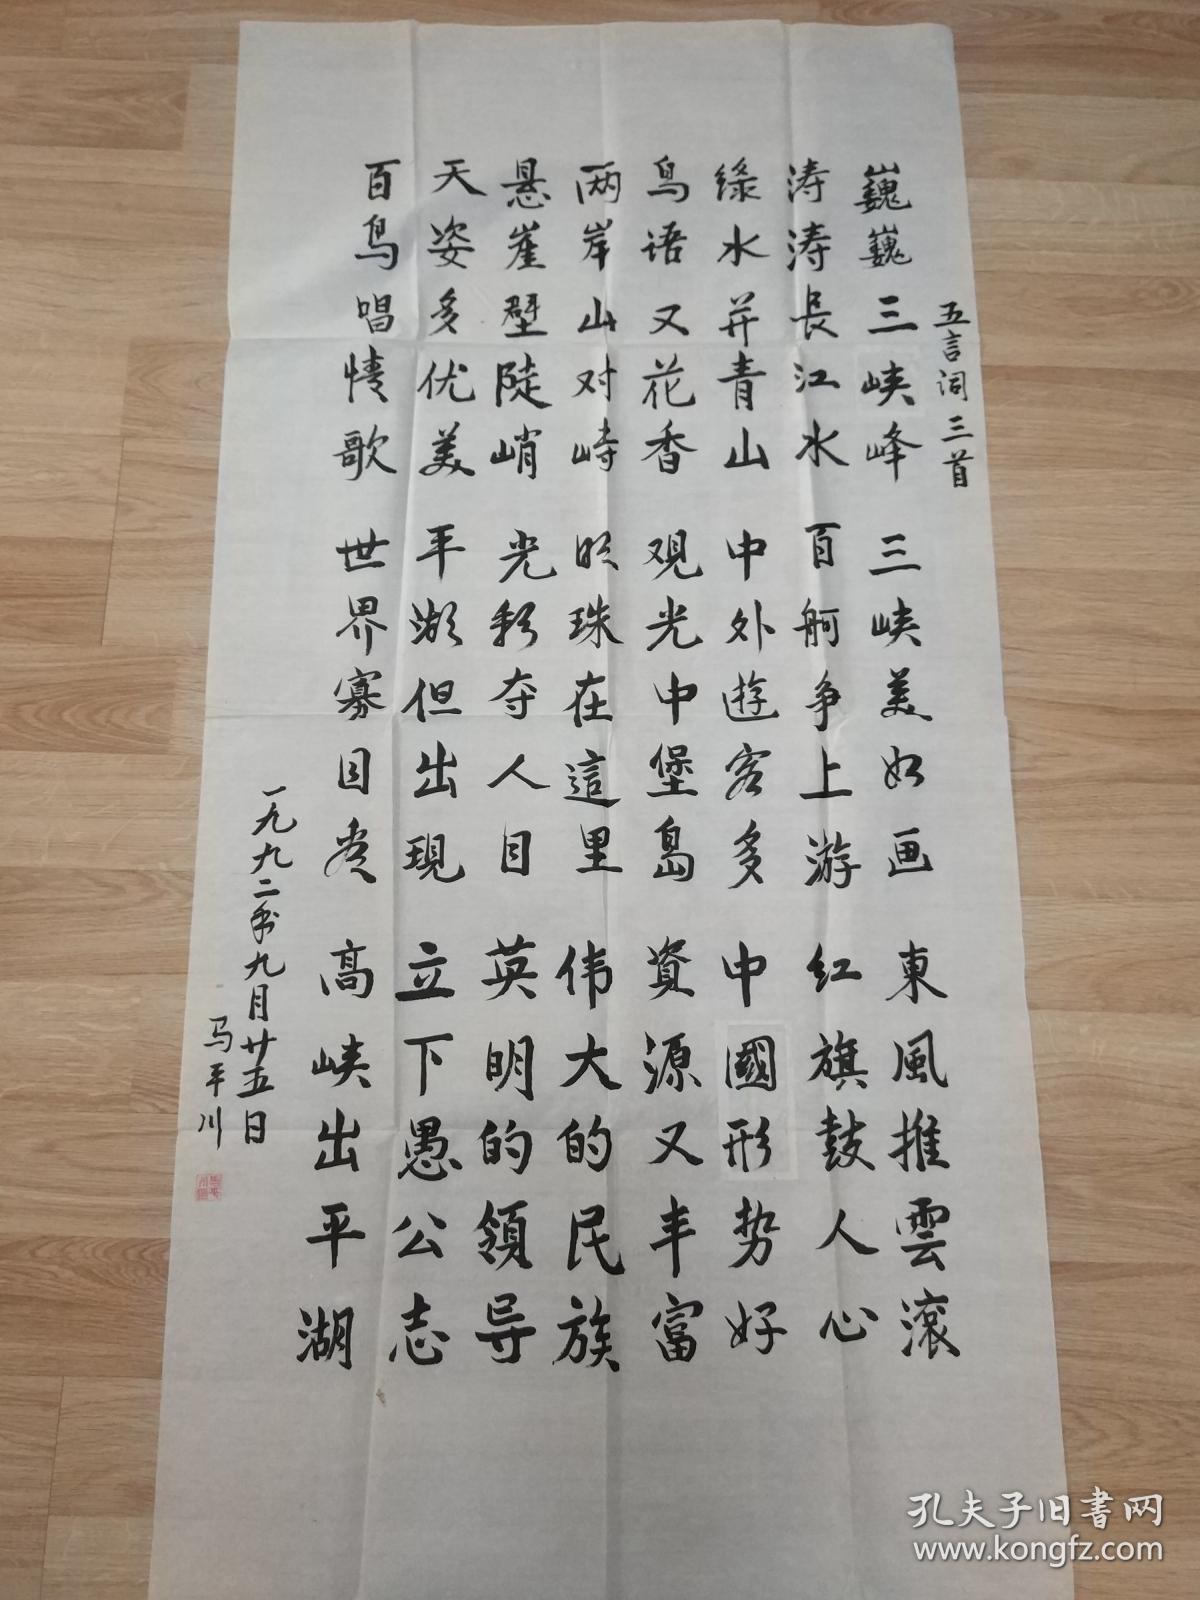 五言词三首
巍巍三峡峰
涛涛長江水
绿水并青山
鸟语又花香
两岸山对峙
悬崖壁陡峭
天姿多优美
百鸟唱情歌
三峡美如画
百舸争上游
中外遊客多
观光中堡島
明珠在這里
光彩夺人目
平湖但出現
世界寡目
東風推雲滚
红旗鼓人心
中國形势好
資源又丰富
伟大的民族
英明的領导
立下愚公志
高峡出平湖
一九九二年九月廿五日
马平川
孔夫子旧书网
www.kongfz.com